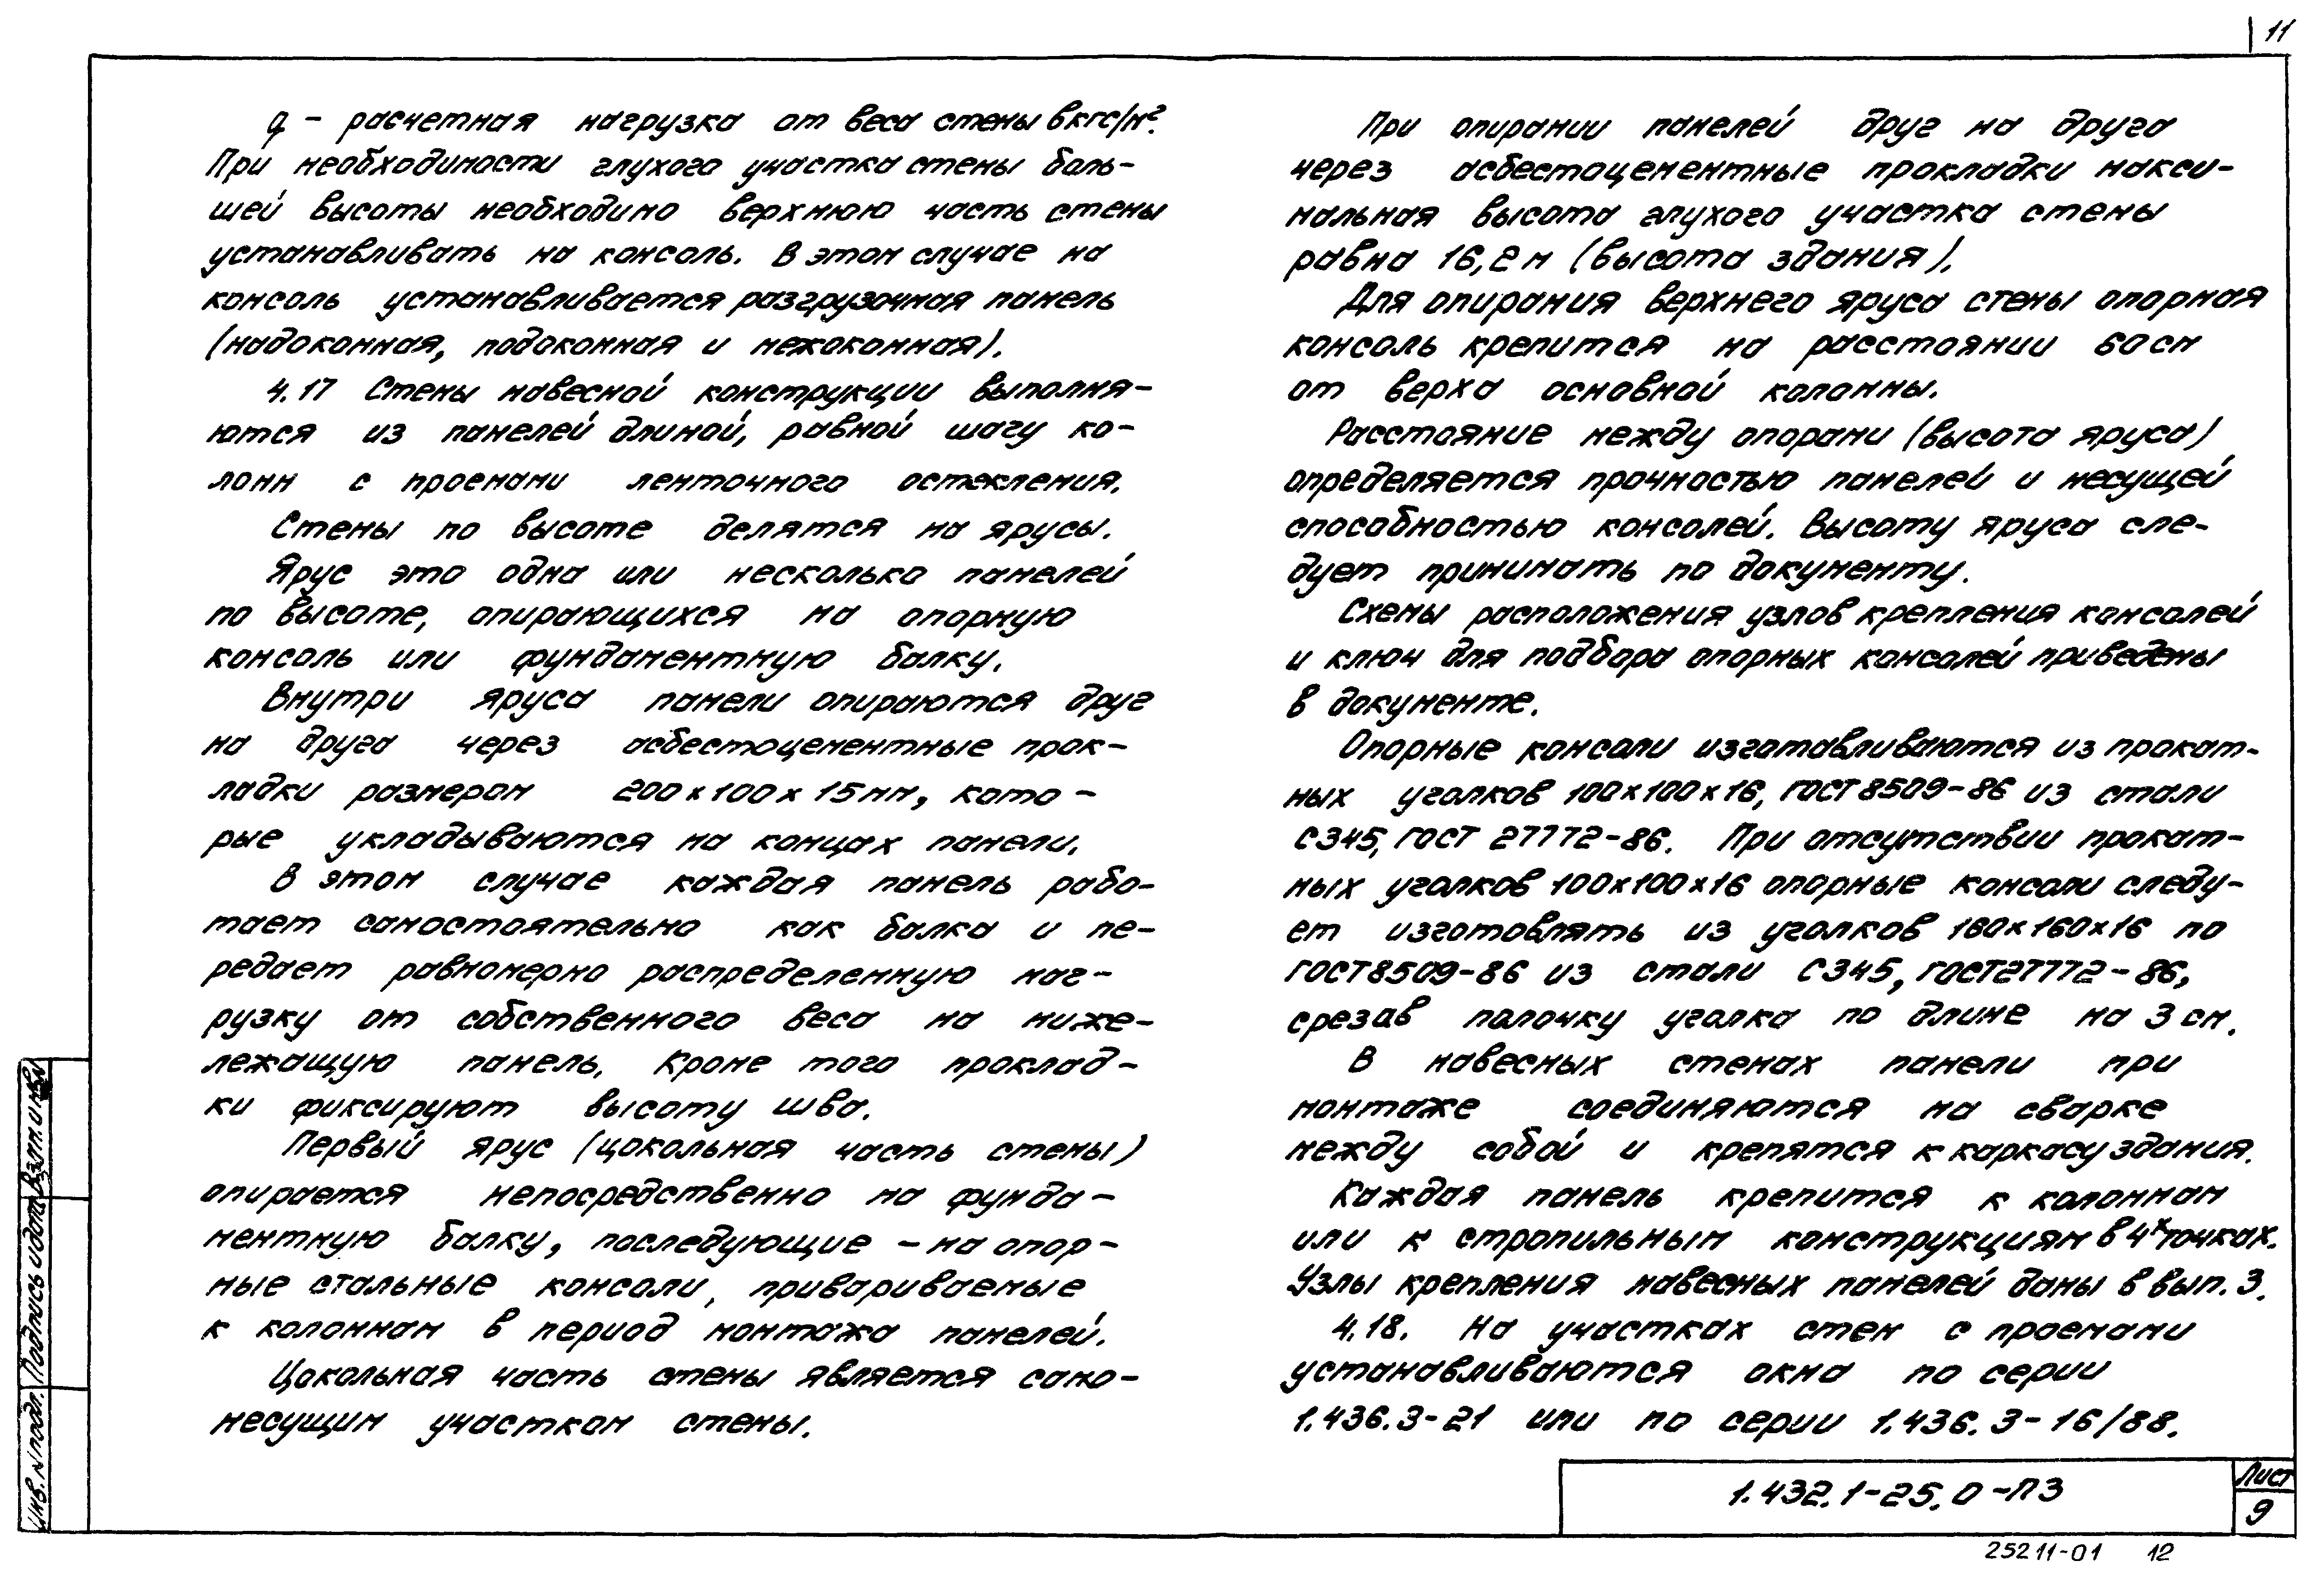 11
q – расчетная нагрузка от веса стены в кгс/м².
При необходимости глухого участка стены боль-
шей высоты необходимо верхнюю часть стены
устанавливать на консоль. В этом случае на
консоль устанавливается разгрузочная панель
(надоконная, подоконная и межоконная).
4.17 Стены навесной конструкции выполня-
ются из панелей длиной, равной шагу ко-
лонн с проемами ленточного остекления.
Стены по высоте делятся на ярусы.
Ярус это одна или несколько панелей
по высоте, опирающихся на опорную
консоль или фундаментную балку.
Внутри яруса панели опираются друг
на друга через асбестоцементные прок-
ладки размером 200х100х15мм, кото-
рые укладываются на концах панели.
В этом случае каждая панель рабо-
тает самостоятельно как балка и пе-
редает равномерно распределенную наг-
рузку от собственного веса на ниже-
лежащую панель. Кроме того проклад-
ки фиксируют высоту шва.
Первый ярус (цокольная часть стены)
опирается непосредственно на фунда-
ментную балку, последующие – на опор-
ные стальные консоли, привариваемые
к колоннам в период монтажа панелей.
Цокольная часть стены является само-
несущим участком стены.
При опирании панелей друг на друга
через асбестоцементные прокладки макси-
мальная высота глухого участка стены
равна 16,2м (высота здания).
Для опирания верхнего яруса стены опорная
консоль крепится на расстоянии 60см
от верха основной колонны.
Расстояние между опорами (высота яруса)
определяется прочностью панелей и несущей
способностью консолей. Высоту яруса сле-
дует принимать по документу.
Схемы расположения узлов крепления консолей
и ключ для подбора опорных консолей приведены
в документе.
Опорные консоли изготавливаются из прокат-
ных уголков 100х100х16, ГОСТ 8509-86 из стали
С345, ГОСТ 27772-86. При отсутствии прокат-
ных уголков 100х100х16 опорные консоли следу-
ет изготовлять из уголков 160х160х16 по
ГОСТ8509-86 из стали С345, ГОСТ27772-86,
срезав полочку уголка по длине на 3 см.
В навесных стенах панели при
монтаже соединяются на сварке
между собой и крепятся к каркасу здания.
Каждая панель крепится к колоннам
или к стропильным конструкциям в 4х точках.
Узлы крепления навесных панелей даны в вып. 3.
4.18. На участках стен с проемами
устанавливаются окна по серии
1.436.3-21 или по серии 1.436.3-16/88.
Инв. N подл. Подпись и дата Взам. инв N
1.432.1-25.0-ПЗ
Лист
9
25211-01 12